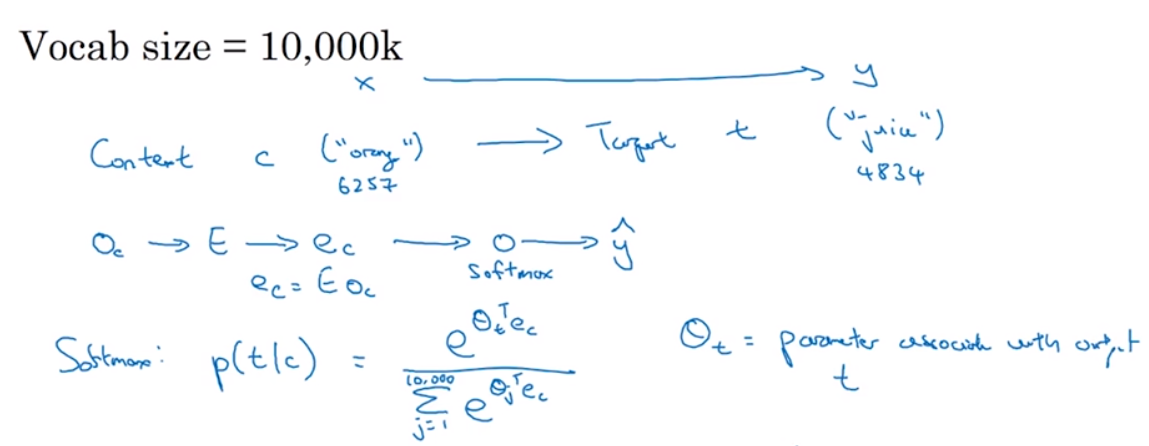 Vocab size = 10,000k
x → y
Context c ("orange") → Target t ("juice")
6257 4834
O_c → E → e_c → o → ŷ
softmax
e_c = E O_c
Softmax: p(t|c) = e^{θ_t^T e_c} / Σ_{j=1}^{10,000} e^{θ_j^T e_c} θ_t = parameter associated with output
t